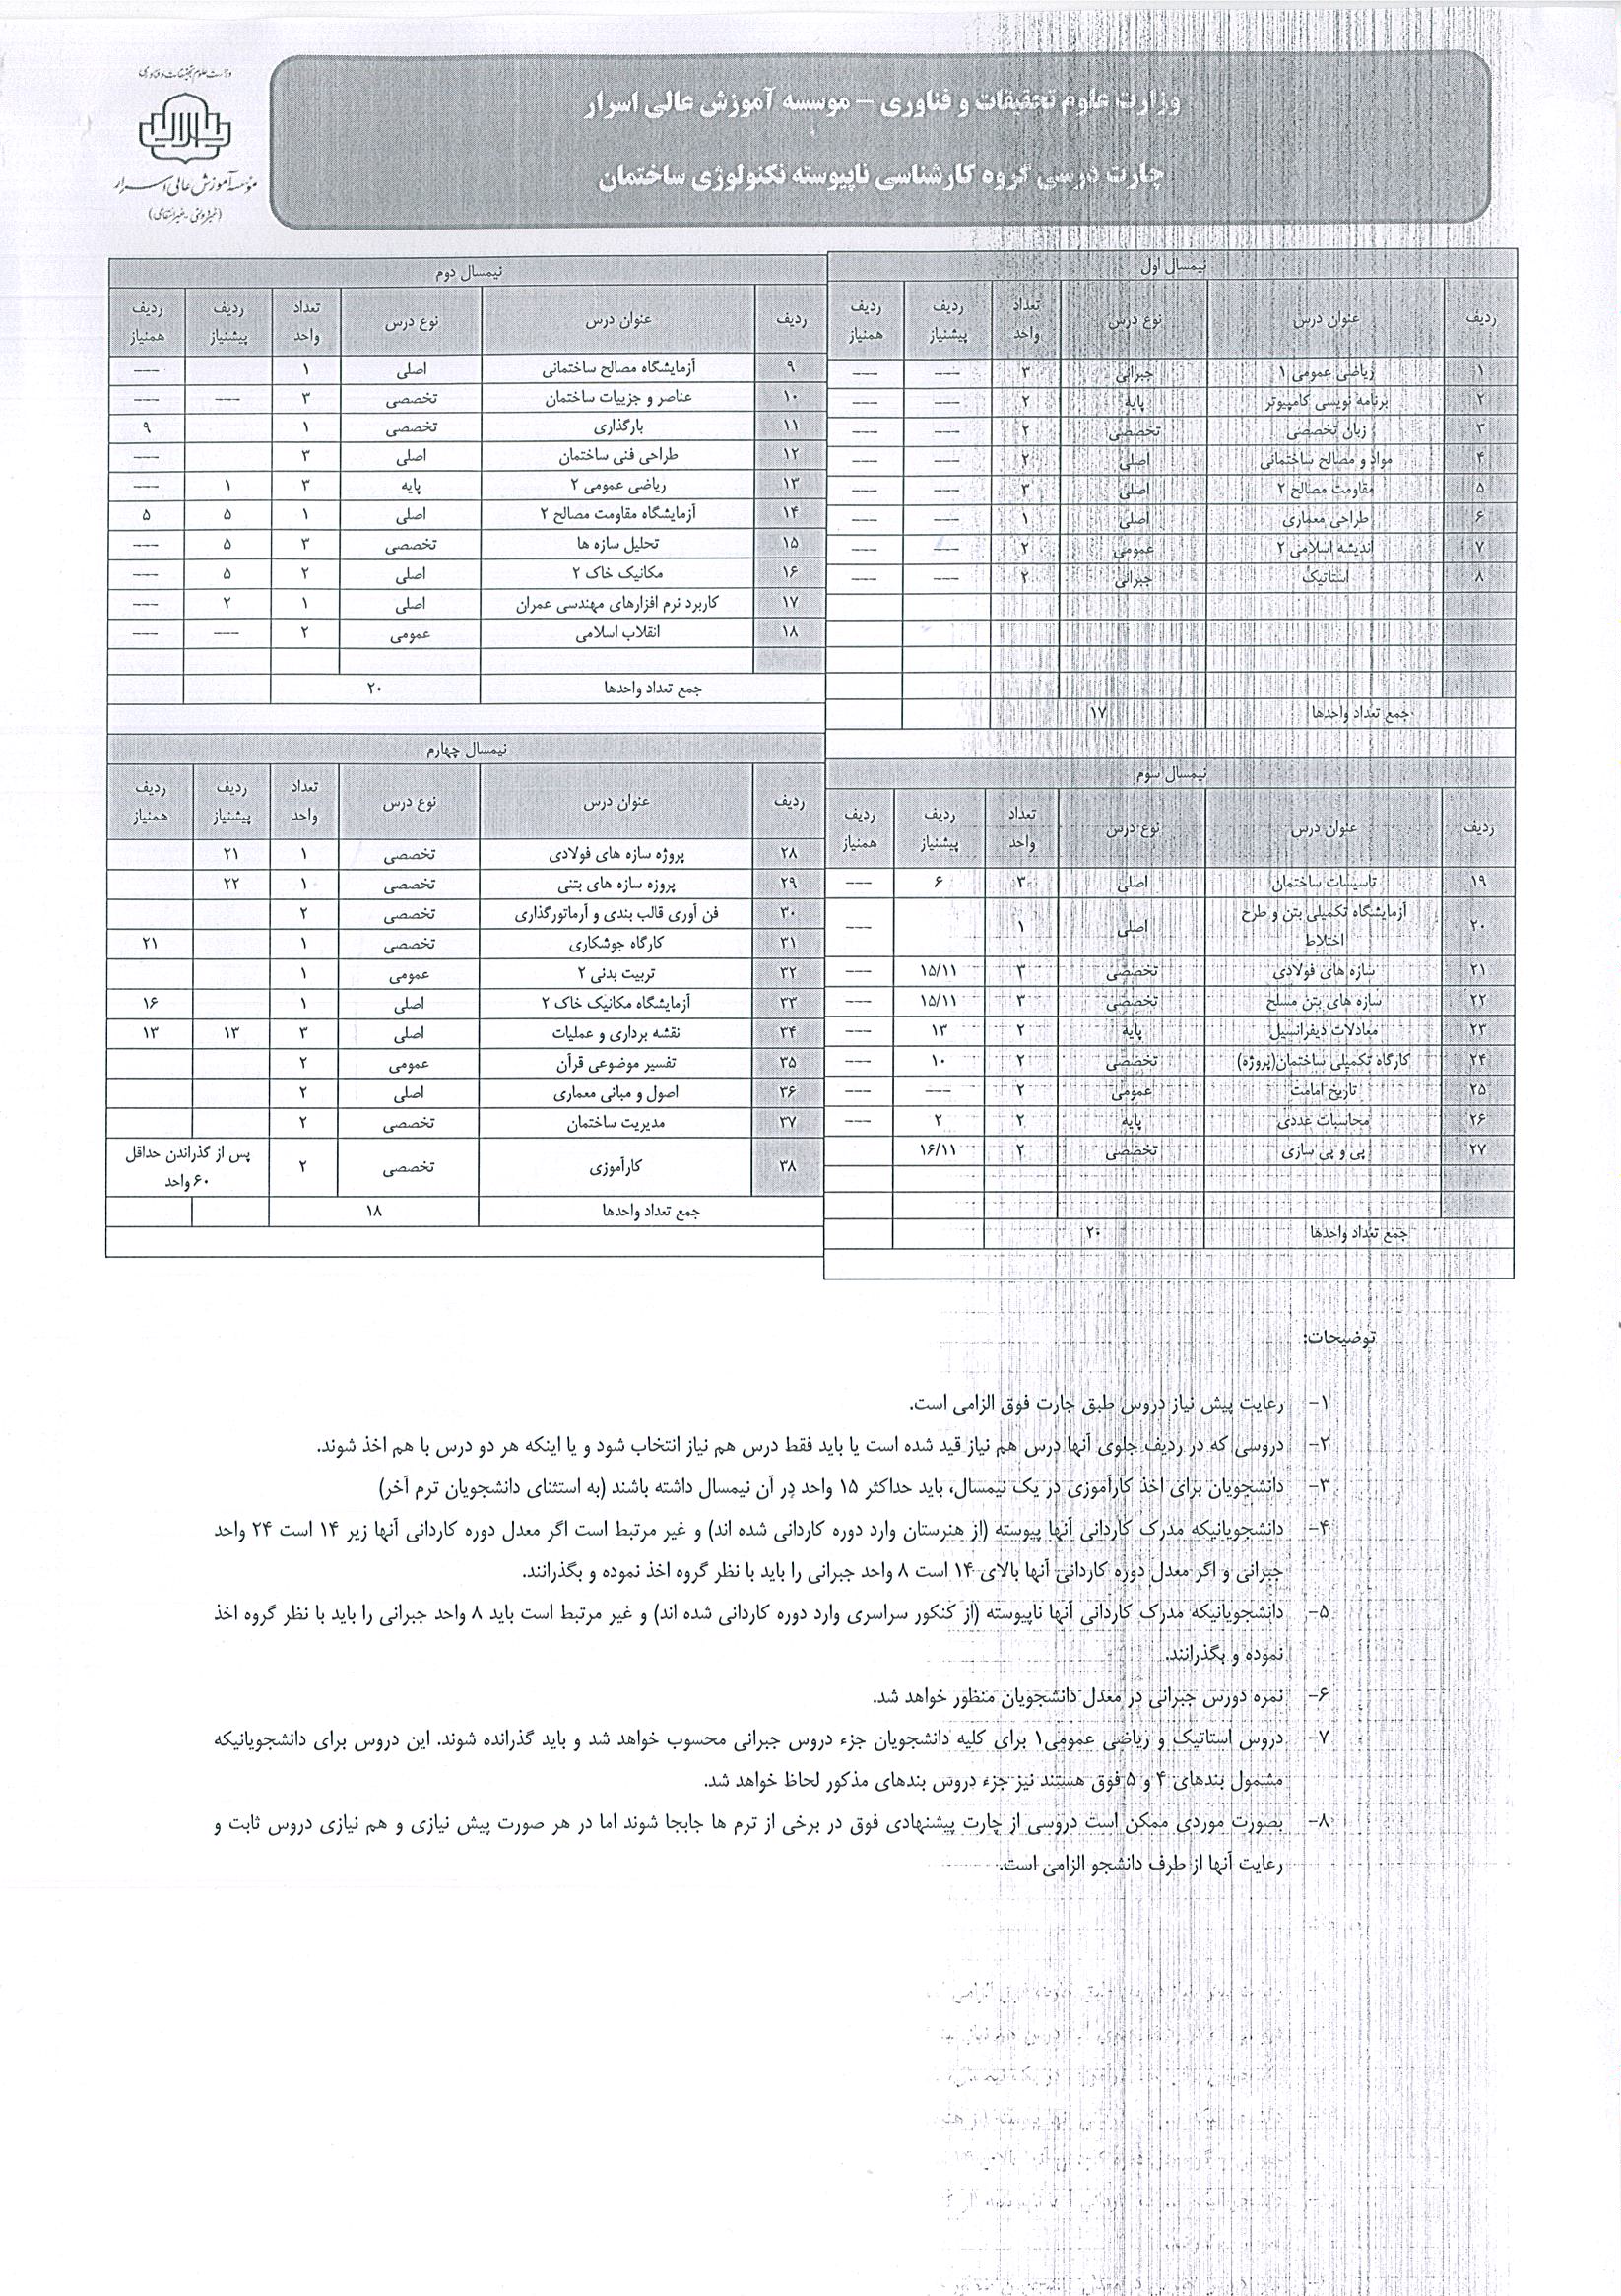 وزارت علوم تحقیقات و فناوری
موسسه آموزش عالی اسرار
(غیردولتی - غیرانتفاعی)
وزارت علوم تحقیقات و فناوری – موسسه آموزش عالی اسرار
چارت درسی گروه کارشناسی ناپیوسته تکنولوژی ساختمان
نیمسال اول
ردیف عنوان درس نوع درس تعداد واحد ردیف پیشنیاز ردیف همنیاز
۱ ریاضی عمومی ۱ جبرانی ۳ --- ---
۲ برنامه نویسی کامپیوتر پایه ۲ --- ---
۳ زبان تخصصی تخصصی ۲ --- ---
۴ مواد و مصالح ساختمانی اصلی ۲ --- ---
۵ مقاومت مصالح ۲ اصلی ۳ --- ---
۶ طراحی معماری اصلی ۱ --- ---
۷ اندیشه اسلامی ۲ عمومی ۲ --- ---
۸ استاتیک جبرانی ۲ --- ---
جمع تعداد واحدها ۱۷
نیمسال دوم
ردیف عنوان درس نوع درس تعداد واحد ردیف پیشنیاز ردیف همنیاز
۹ آزمایشگاه مصالح ساختمانی اصلی ۱ ---
۱۰ عناصر و جزییات ساختمان تخصصی ۳ --- ---
۱۱ بارگذاری تخصصی ۱ ۹
۱۲ طراحی فنی ساختمان اصلی ۳ ---
۱۳ ریاضی عمومی ۲ پایه ۳ ۱ ---
۱۴ آزمایشگاه مقاومت مصالح ۲ اصلی ۱ ۵ ۵
۱۵ تحلیل سازه ها تخصصی ۳ ۵ ---
۱۶ مکانیک خاک ۲ اصلی ۲ ۵ ---
۱۷ کاربرد نرم افزارهای مهندسی عمران اصلی ۱ ۲ ---
۱۸ انقلاب اسلامی عمومی ۲ --- ---
جمع تعداد واحدها ۲۰
نیمسال سوم
ردیف عنوان درس نوع درس تعداد واحد ردیف پیشنیاز ردیف همنیاز
۱۹ تاسیسات ساختمان اصلی ۳ ۶ ---
۲۰ آزمایشگاه تکمیلی بتن و طرح اختلاط اصلی ۱ ---
۲۱ سازه های فولادی تخصصی ۳ ۱۵/۱۱ ---
۲۲ سازه های بتن مسلح تخصصی ۳ ۱۵/۱۱ ---
۲۳ معادلات دیفرانسیل پایه ۲ ۱۳ ---
۲۴ کارگاه تکمیلی ساختمان(پروژه) تخصصی ۲ ۱۰ ---
۲۵ تاریخ امامت عمومی ۲ --- ---
۲۶ محاسبات عددی پایه ۲ ۲ ---
۲۷ پی و پی سازی تخصصی ۲ ۱۶/۱۱
جمع تعداد واحدها ۲۰
نیمسال چهارم
ردیف عنوان درس نوع درس تعداد واحد ردیف پیشنیاز ردیف همنیاز
۲۸ پروژه سازه های فولادی تخصصی ۱ ۲۱
۲۹ پروزه سازه های بتنی تخصصی ۱ ۲۲
۳۰ فن آوری قالب بندی و آرماتورگذاری تخصصی ۲
۳۱ کارگاه جوشکاری تخصصی ۱ ۲۱
۳۲ تربیت بدنی ۲ عمومی ۱
۳۳ آزمایشگاه مکانیک خاک ۲ اصلی ۱ ۱۶
۳۴ نقشه برداری و عملیات اصلی ۳ ۱۳ ۱۳
۳۵ تفسیر موضوعی قرآن عمومی ۲
۳۶ اصول و مبانی معماری اصلی ۲
۳۷ مدیریت ساختمان تخصصی ۲
۳۸ کارآموزی تخصصی ۲ پس از گذراندن حداقل ۶۰ واحد
جمع تعداد واحدها ۱۸
توضیحات:
۱- رعایت پیش نیاز دروس طبق چارت فوق الزامی است.
۲- دروسی که در ردیف جلوی آنها درس هم نیاز قید شده است یا باید فقط درس هم نیاز انتخاب شود و یا اینکه هر دو درس با هم اخذ شوند.
۳- دانشجویان برای اخذ کارآموزی در یک نیمسال، باید حداکثر ۱۵ واحد در آن نیمسال داشته باشند (به استثنای دانشجویان ترم آخر)
۴- دانشجویانیکه مدرک کاردانی آنها پیوسته (از هنرستان وارد دوره کاردانی شده اند) و غیر مرتبط است اگر معدل دوره کاردانی آنها زیر ۱۴ است ۲۴ واحد
جبرانی و اگر معدل دوره کاردانی آنها بالای ۱۴ است ۸ واحد جبرانی را باید با نظر گروه اخذ نموده و بگذرانند.
۵- دانشجویانیکه مدرک کاردانی آنها ناپیوسته (از کنکور سراسری وارد دوره کاردانی شده اند) و غیر مرتبط است باید ۸ واحد جبرانی را باید با نظر گروه اخذ
نموده و بگذرانند.
۶- نمره دورس جبرانی در معدل دانشجویان منظور خواهد شد.
۷- دروس استاتیک و ریاضی عمومی۱ برای کلیه دانشجویان جزء دروس جبرانی محسوب خواهد شد و باید گذرانده شوند. این دروس برای دانشجویانیکه
مشمول بندهای ۴ و ۵ فوق هستند نیز جزء دروس بندهای مذکور لحاظ خواهد شد.
۸- بصورت موردی ممکن است دروسی از چارت پیشنهادی فوق در برخی از ترم ها جابجا شوند اما در هر صورت پیش نیازی و هم نیازی دروس ثابت و
رعایت آنها از طرف دانشجو الزامی است.